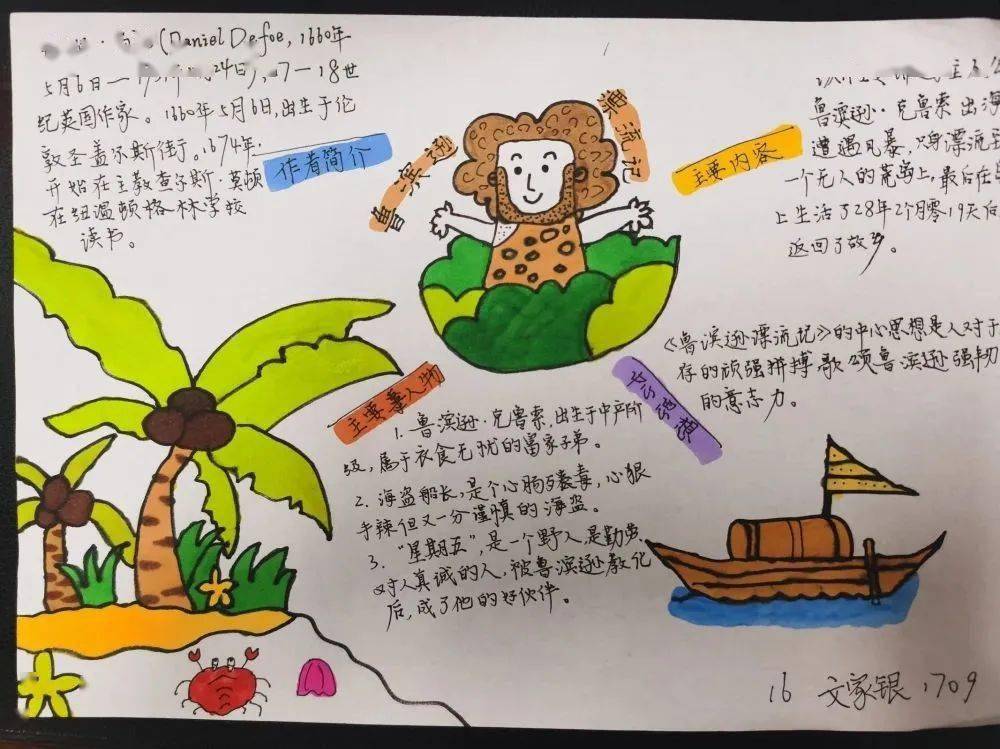 (Daniel Defoe, 1660年
5月6日— 24日), 17—18世
纪英国作家。1660年5月6日,出生于伦
敦圣盖尔斯街。1674年
开始在主教查尔斯·莫顿
在纽温顿格林学校
读书。
作者简介
鲁滨逊
漂流记
主要内容
鲁滨逊·克鲁索出海
遭遇风暴,只身漂流至
一个无人的荒岛上,最后在
上生活了28年2个月零19天后
返回了故乡。
《鲁滨逊漂流记》的中心思想是人对于
存的顽强拼搏歌颂鲁滨逊强韧
的意志力。
中心思想
主要人物
1. 鲁滨逊·克鲁索,出生于中产阶
级,属于衣食无忧的富家子弟。
2. 海盗船长,是个心肠歹毒,心狠
手辣但又十分谨慎的海盗。
3. "星期五",是一个野人,是勤劳,
对人真诚的人,被鲁滨逊教化
后,成了他的好伙伴。
16 文家银 1709